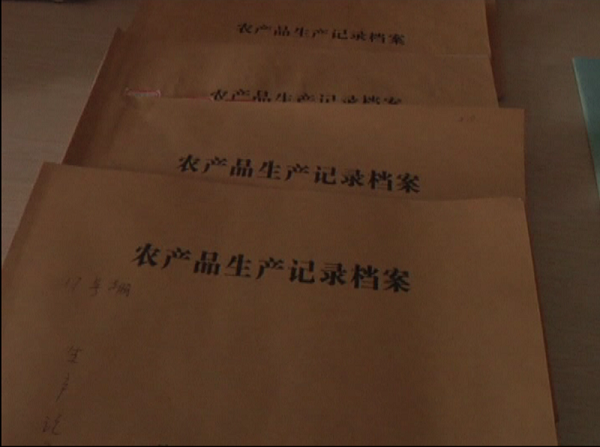 农产品生产记录档案
农产品生产记录档案
农产品生产记录档案
农产品生产记录档案